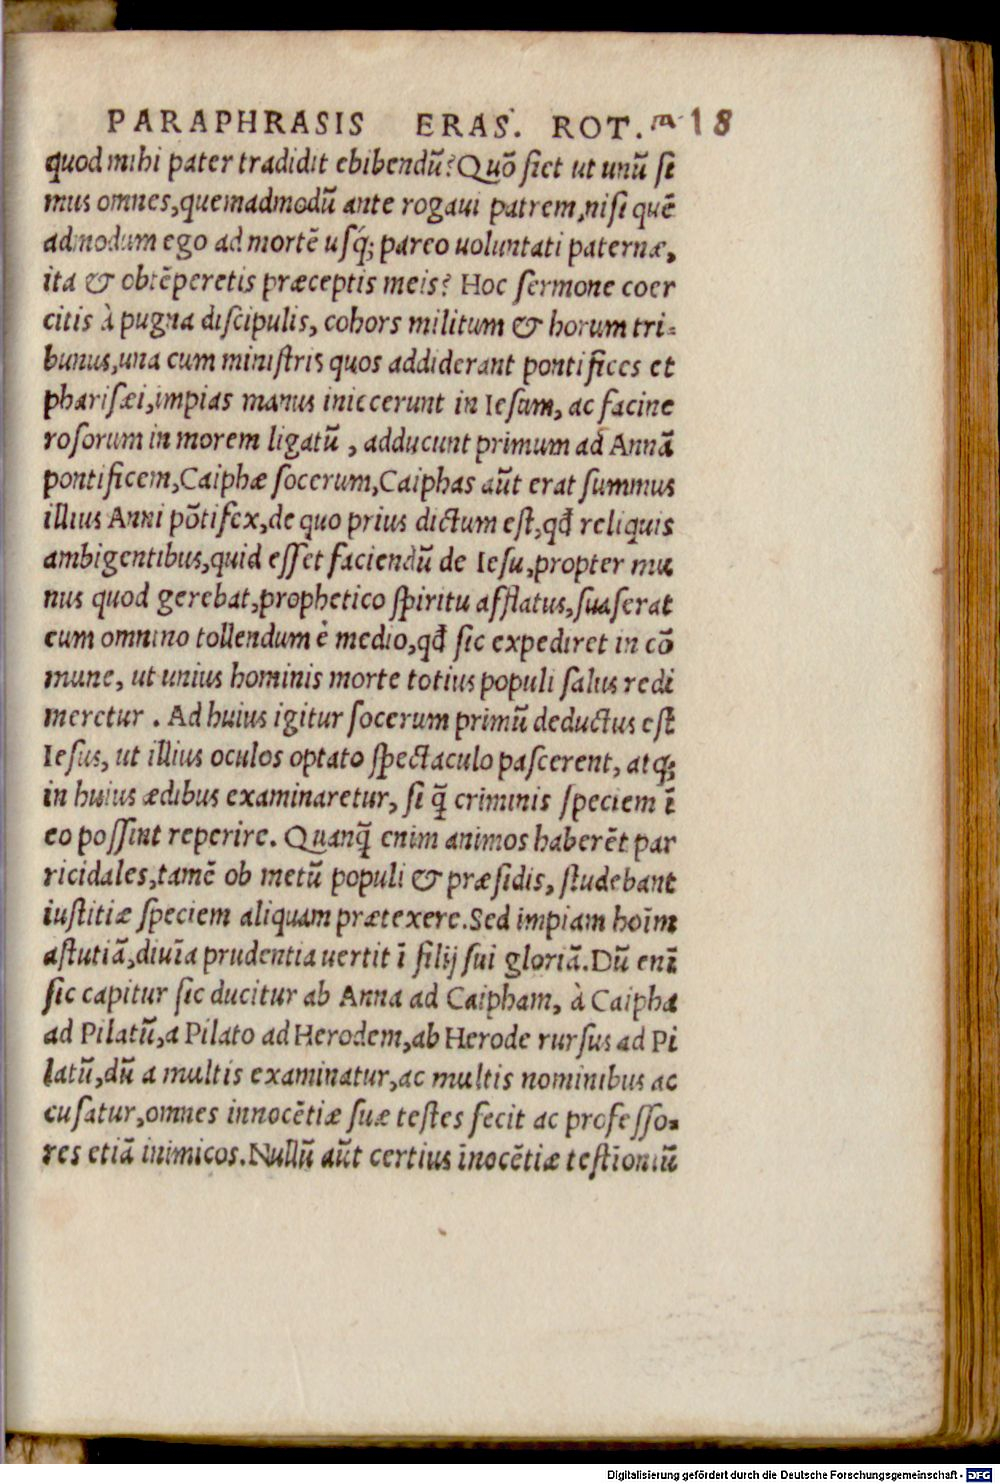 PARAPHRASIS ERAS. ROT. 18
quod mihi pater tradidit ebibendũ? Quõ fiet ut unũ ſi
mus omnes, quemadmodũ ante rogaui patrem, niſi quẽ
admodum ego ad mortẽ uſq́; pareo uoluntati paternæ,
ita & obtẽperetis præceptis meis? Hoc ſermone coer
citis à pugna diſcipulis, cohors militum & horum tri-
bunus, una cum miniſtris quos addiderant pontifices et
phariſæi, impias manus iniecerunt in Ieſum, ac facine
roſorum in morem ligatũ, adducunt primum ad Annã
pontificem, Caiphæ ſocerum, Caiphas aũt erat ſummus
illius Anni põtifex, de quo prius dictum eſt, qđ reliquis
ambigentibus, quid eſſet faciendũ de Ieſu, propter mu
nus quod gerebat, prophetico ſpiritu afflatus, ſuaſerat
eum omnino tollendum è medio, qđ ſic expediret in cõ
mune, ut unius hominis morte totius populi ſalus redi
meretur. Ad huius igitur ſocerum primũ deductus eſt
Ieſus, ut illius oculos optato ſpectaculo paſcerent, atq;
in huius ædibus examinaretur, ſi q̃ criminis ſpeciem ĩ
eo poſſint reperire. Quanq̃ enim animos haberẽt par
ricidales, tamẽ ob metũ populi & præſidis, ſtudebant
iuſtitiæ ſpeciem aliquam prætexere. Sed impiam hoĩm
aſtutiã, diuĩa prudentia uertit ĩ filij ſui gloriã. Dũ enĩ
ſic capitur ſic ducitur ab Anna ad Caipham, à Caipha
ad Pilatũ, a Pilato ad Herodem, ab Herode rurſus ad Pi
latũ, dũ a multis examinatur, ac multis nominibus ac
cuſatur, omnes innocẽtiæ ſuæ teſtes fecit ac profeſſo-
res etiã inimicos. Nullũ aũt certius ĩnocẽtiæ teſtĩoniũ
Digitalisierung gefördert durch die Deutsche Forschungsgemeinschaft - DFG